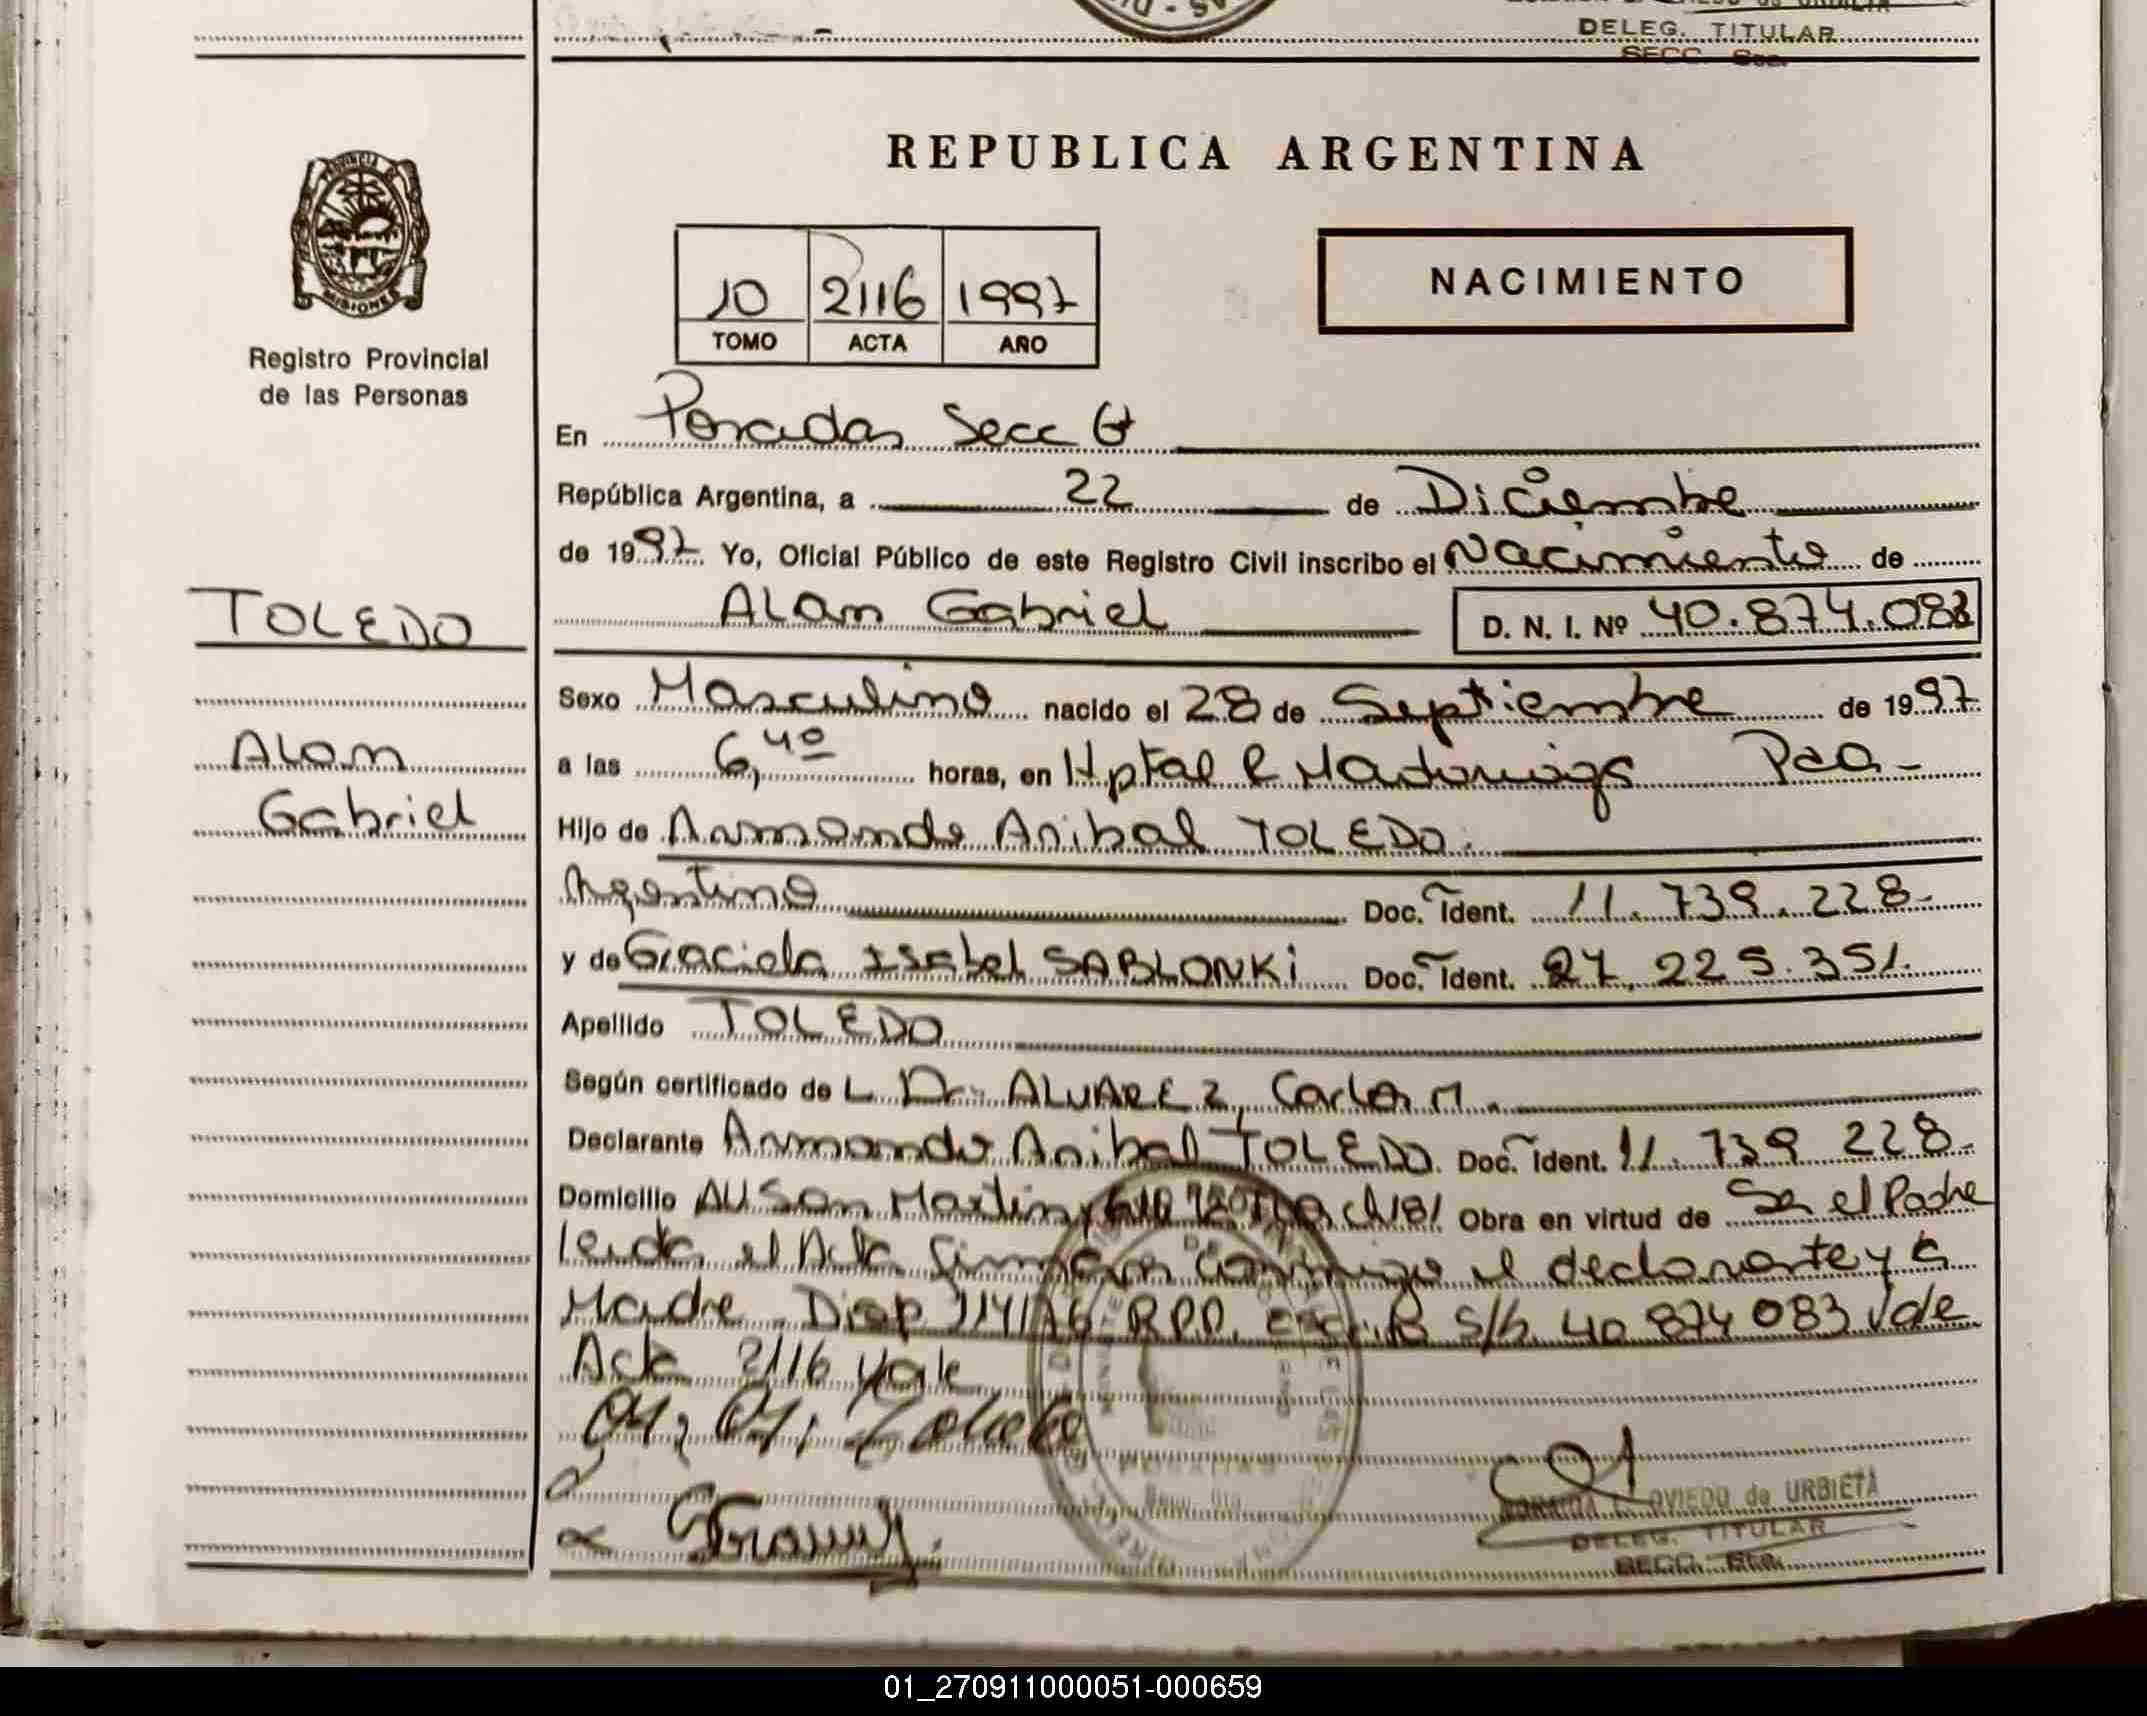 DELEG. TITULAR
SECC. 6ta.
REPUBLICA ARGENTINA
PROVINCIA
MISIONES
10 2116 1997
TOMO ACTA AÑO
NACIMIENTO
Registro Provincial
de las Personas
En Posadas Secc 6ta
República Argentina, a 22 de Diciembre
de 1997 Yo, Oficial Público de este Registro Civil inscribo el Nacimiento de
TOLEDO
Alan Gabriel D. N. I. Nº 40.874.083
Sexo Masculino nacido el 28 de Septiembre de 1997
Alan
a las 6,40 horas, en Hptal R Madariaga Pdas
Gabriel
Hijo de Armando Anibal TOLEDO.
Argentino Doc. Ident. 11.739.228-
y de Graciela Isabel SABLONKi Doc. Ident. 27.225.351.
Apellido TOLEDO
Según certificado de L Dr. ALVAREZ, Carlos M.
Declarante Armando Anibal TOLEDO. Doc. Ident. 11.739 228-
Domicilio AV San Martin ch 181 Obra en virtud de Ser el Padre
leida el Acta firman conmigo el declarante y la
Madre Disp 114/76 RPP. S/b 40 874 083 Vale
Acta 2116 Vale
OVIEDO de URBIETA
DELEG. TITULAR
SECC. 6ta.
01_270911000051-000659